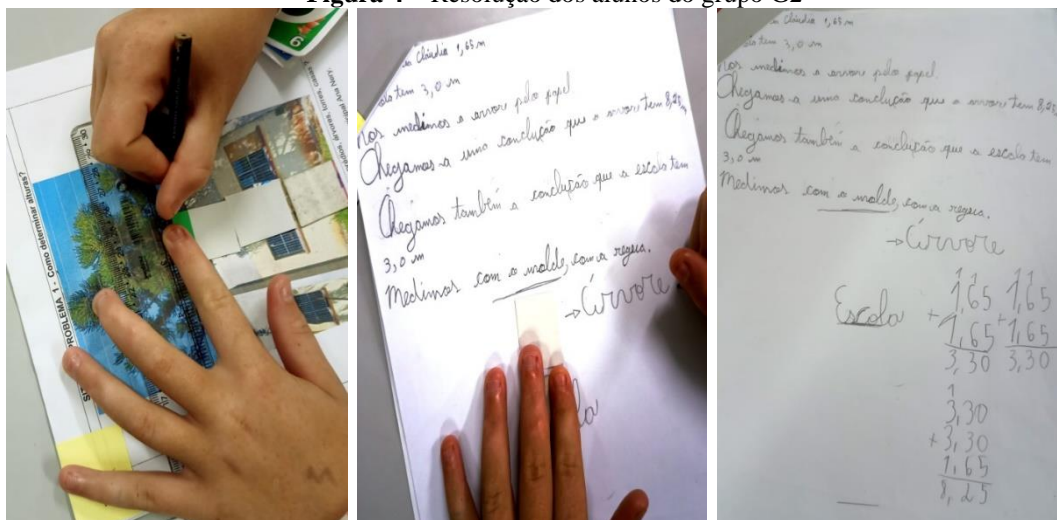 Figura 4 – Resolução dos alunos do grupo G2
6
30
PROBLEMA 1 - Como determinar alturas?
Cláudia 1,65 m
tem 3,0 m
Nos medimos a arvore pelo papel.
Chegamos a uma conclução que a arvore tem 8,25,
Chegamos também a conclução que a escola tem
3,0 m
Medimos com o molde, com a regua.
→ Árvore
Cláudia 1,65 m
tem 3,0 m
Nos medimos a arvore pelo papel.
Chegamos a uma conclução que a arvore tem 8,25,
Chegamos também a conclução que a escola tem
3,0 m
Medimos com o molde, com a regua.
→ Árvore
Escola
1 1
1,65 1,65
+ 1,65 + 1,65
3,30 3,30
1
3,30
+ 3,30
1,65
8,25